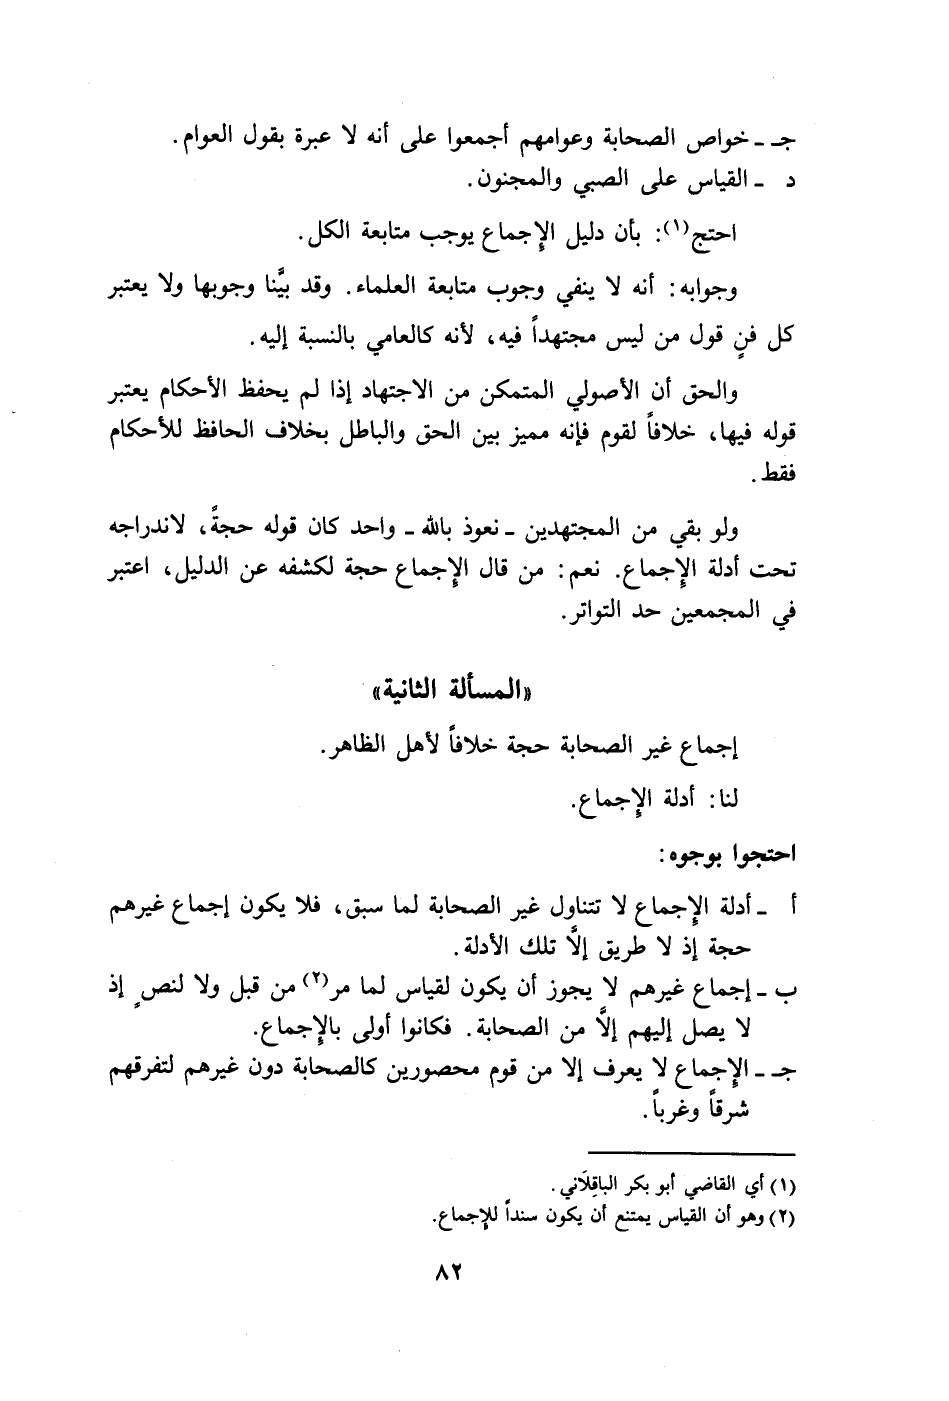 جـ ـ خواص الصحابة وعوامهم أجمعوا على أنه لا عبرة بقول العوام.
د ـ القياس على الصبي والمجنون.
احتج(١): بأن دليل الإجماع يوجب متابعة الكل.
وجوابه: أنه لا ينفي وجوب متابعة العلماء. وقد بيَّنا وجوبها ولا يعتبر
كل فنٍ قول من ليس مجتهداً فيه، لأنه كالعامي بالنسبة إليه.
والحق أن الأصولي المتمكن من الاجتهاد إذا لم يحفظ الأحكام يعتبر
قوله فيها، خلافاً لقوم فإنه مميز بين الحق والباطل بخلاف الحافظ للأحكام
فقط.
ولو بقي من المجتهدين ـ نعوذ بالله ـ واحد كان قوله حجةً، لاندراجه
تحت أدلة الإجماع. نعم: من قال الإجماع حجة لكشفه عن الدليل، اعتبر
في المجمعين حد التواتر.
«المسألة الثانية»
إجماع غير الصحابة حجة خلافاً لأهل الظاهر.
لنا: أدلة الإجماع.
احتجوا بوجوه:
أ ـ أدلة الإجماع لا تتناول غير الصحابة لما سبق، فلا يكون إجماع غيرهم
حجة إذ لا طريق إلَّا تلك الأدلة.
ب ـ إجماع غيرهم لا يجوز أن يكون لقياس لما مر(٢) من قبل ولا لنصٍ إذ
لا يصل إليهم إلَّا من الصحابة. فكانوا أولى بالإجماع.
جـ ـ الإجماع لا يعرف إلا من قوم محصورين كالصحابة دون غيرهم لتفرقهم
شرقاً وغرباً.
(١) أي القاضي أبو بكر الباقِلَاني.
(٢) وهو أن القياس يمتنع أن يكون سنداً للإجماع.
٨٢